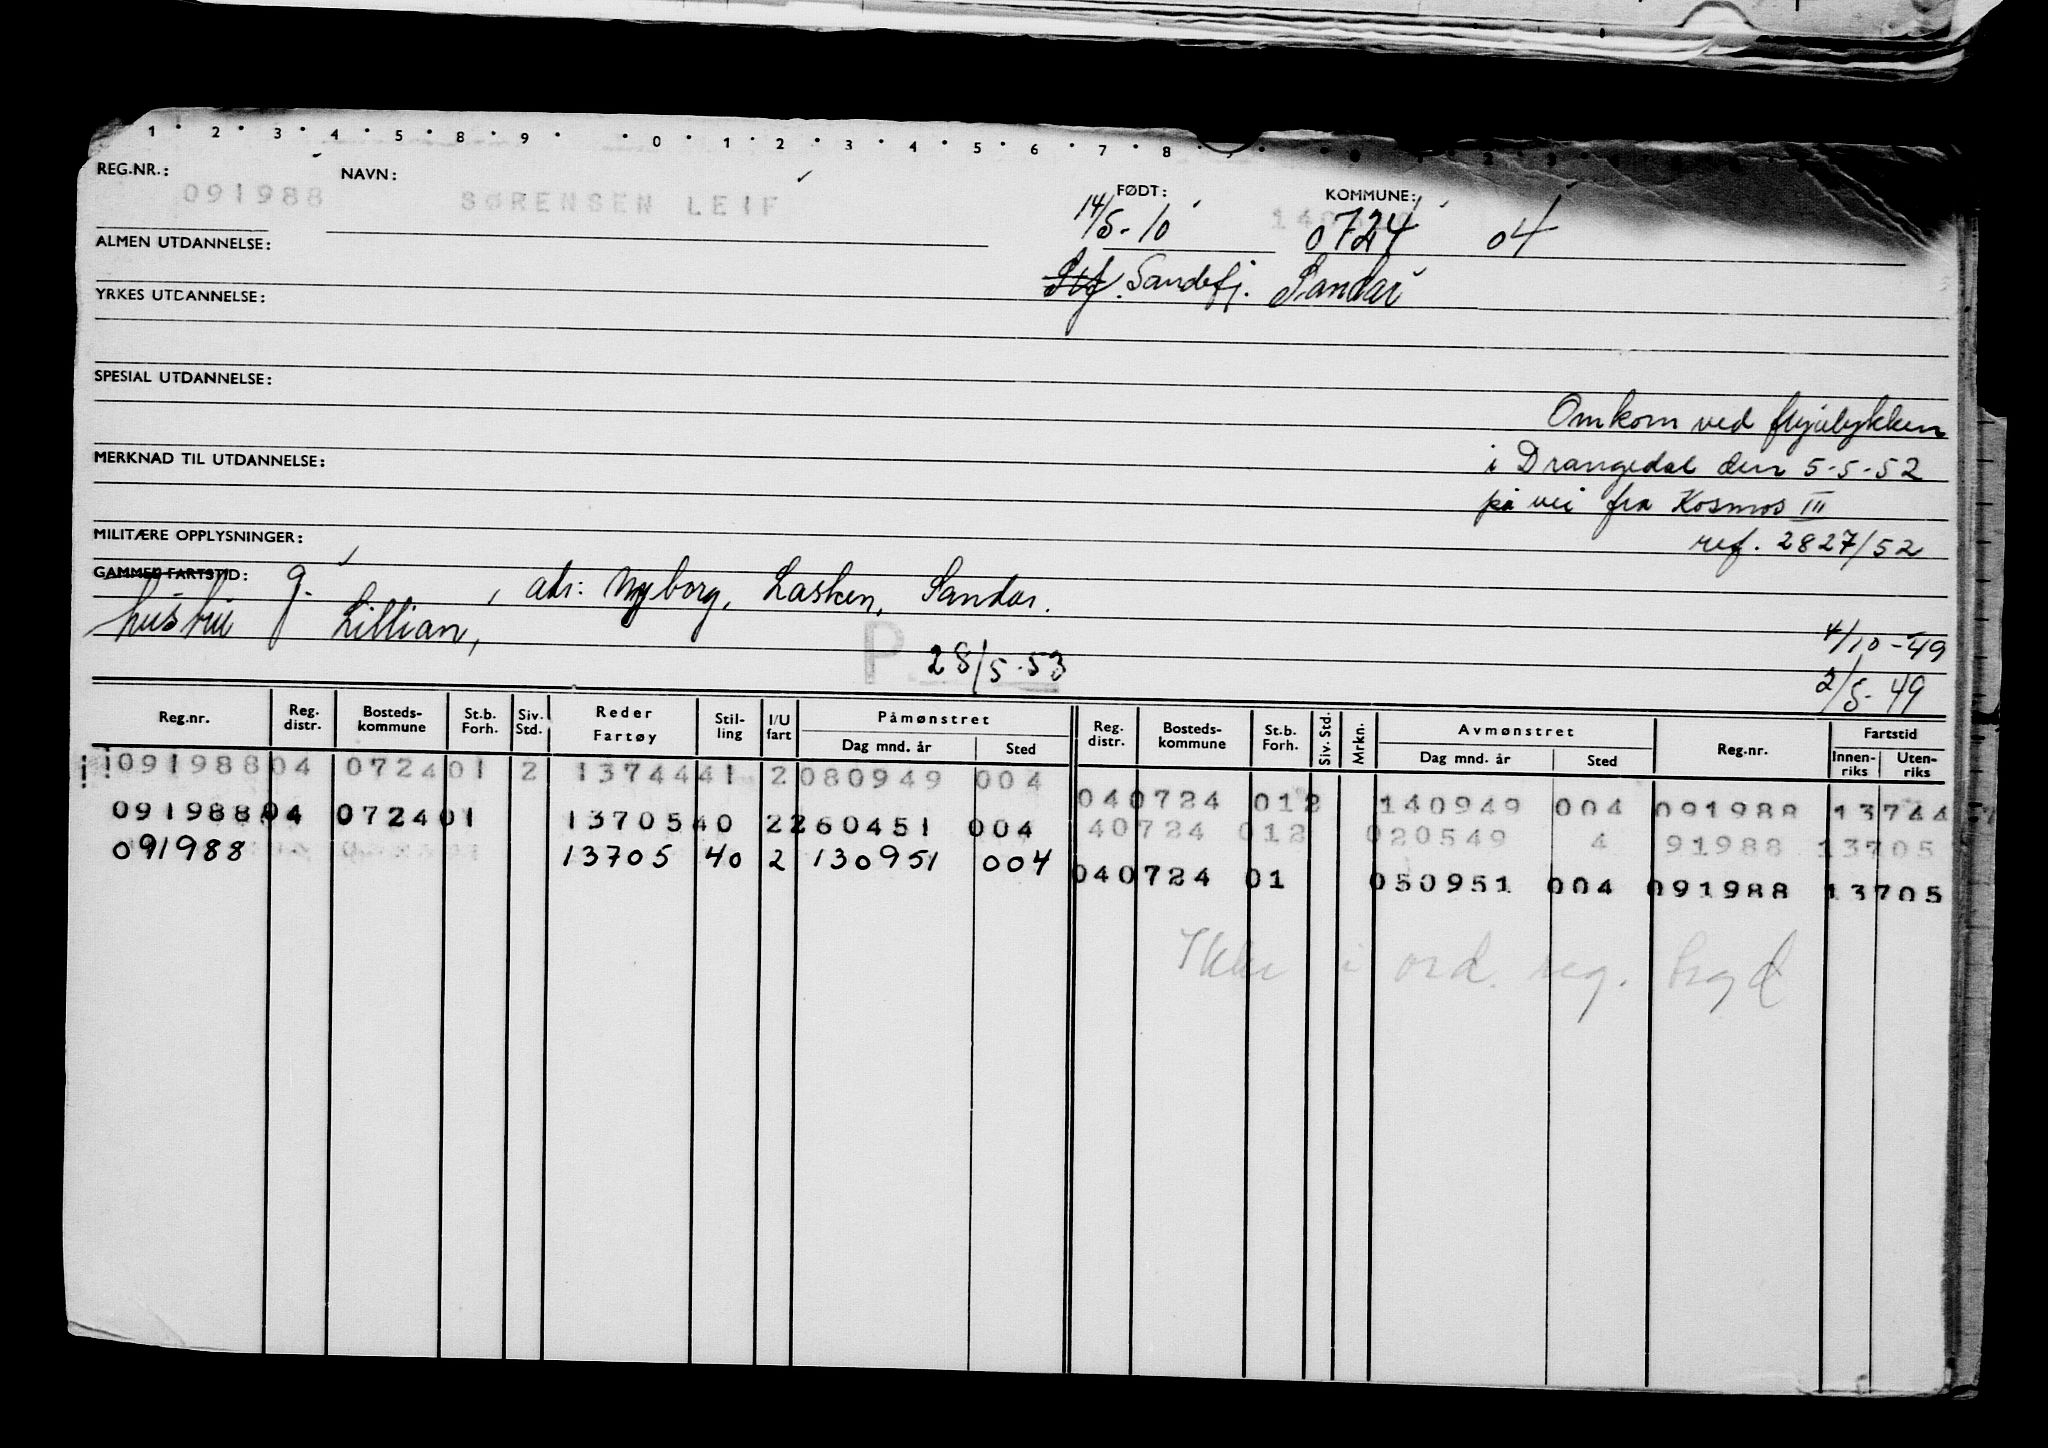 1 · 2 · 3 · 4 · 5 · 8 · 9 · · 0 · 1 · 2 · 3 · 4 · 5 · 6 · 7 · 8
REG.NR.: NAVN: FØDT: KOMMUNE:
091988 SØRENSEN LEIF 14/5-10 0724 04
ALMEN UTDANNELSE:
Sandefj. Sandar
YRKES UTDANNELSE:
SPESIAL UTDANNELSE:
Omkom ved flyulykken
MERKNAD TIL UTDANNELSE: i Drangedal den 5-5-52
på vei fra Kosmos III
MILITÆRE OPPLYSNINGER: ref. 2827/52
GAMMEL FARTSTID: g. , adr: Nyborg, Lasken, Sandar.
hustru Lillian, 4/10-49
P 28/5-53
2/5-49
Reg.nr. Reg. distr. Bosteds-kommune St.b. Forh. Siv. Std. Reder Fartøy Stil-ling I/U fart Påmønstret Dag mnd. år Sted Reg. distr. Bosteds-kommune St.b. Forh. Siv. Std. Mrkn. Avmønstret Dag mnd. år Sted Reg.nr. Fartstid Innen-riks Uten-riks
091988 04 0724 01 2 13744 41 2 080949 004
04 0724 01 2 140949 004 091988 13744
091988 04 0724 01 13705 40 2 260451 004
4 0724 01 2 020549 4 91988 13705
091988 13705 40 2 130951 004
04 0724 01 050951 004 091988 13705
Ikke i ord. reg.